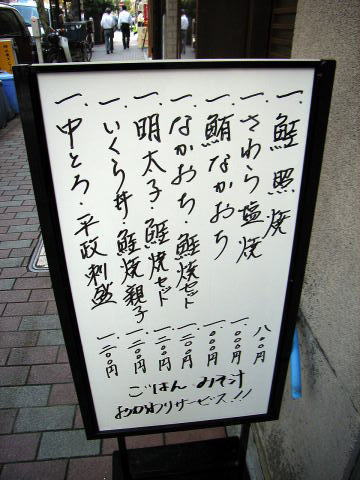 一.鮭照焼 八〇〇円
一.さわら塩焼 一〇〇〇円
一.鮪なかおち 一〇〇〇円
一.なかおち・鮭焼セット 一二〇〇円
一.明太子・鮭焼セット 一二〇〇円
一.いくら丼 鮭焼親子 一二〇〇円
一.中とろ・平政刺盛 一二〇〇円
ごはん みそ汁
おかわりサービス!!